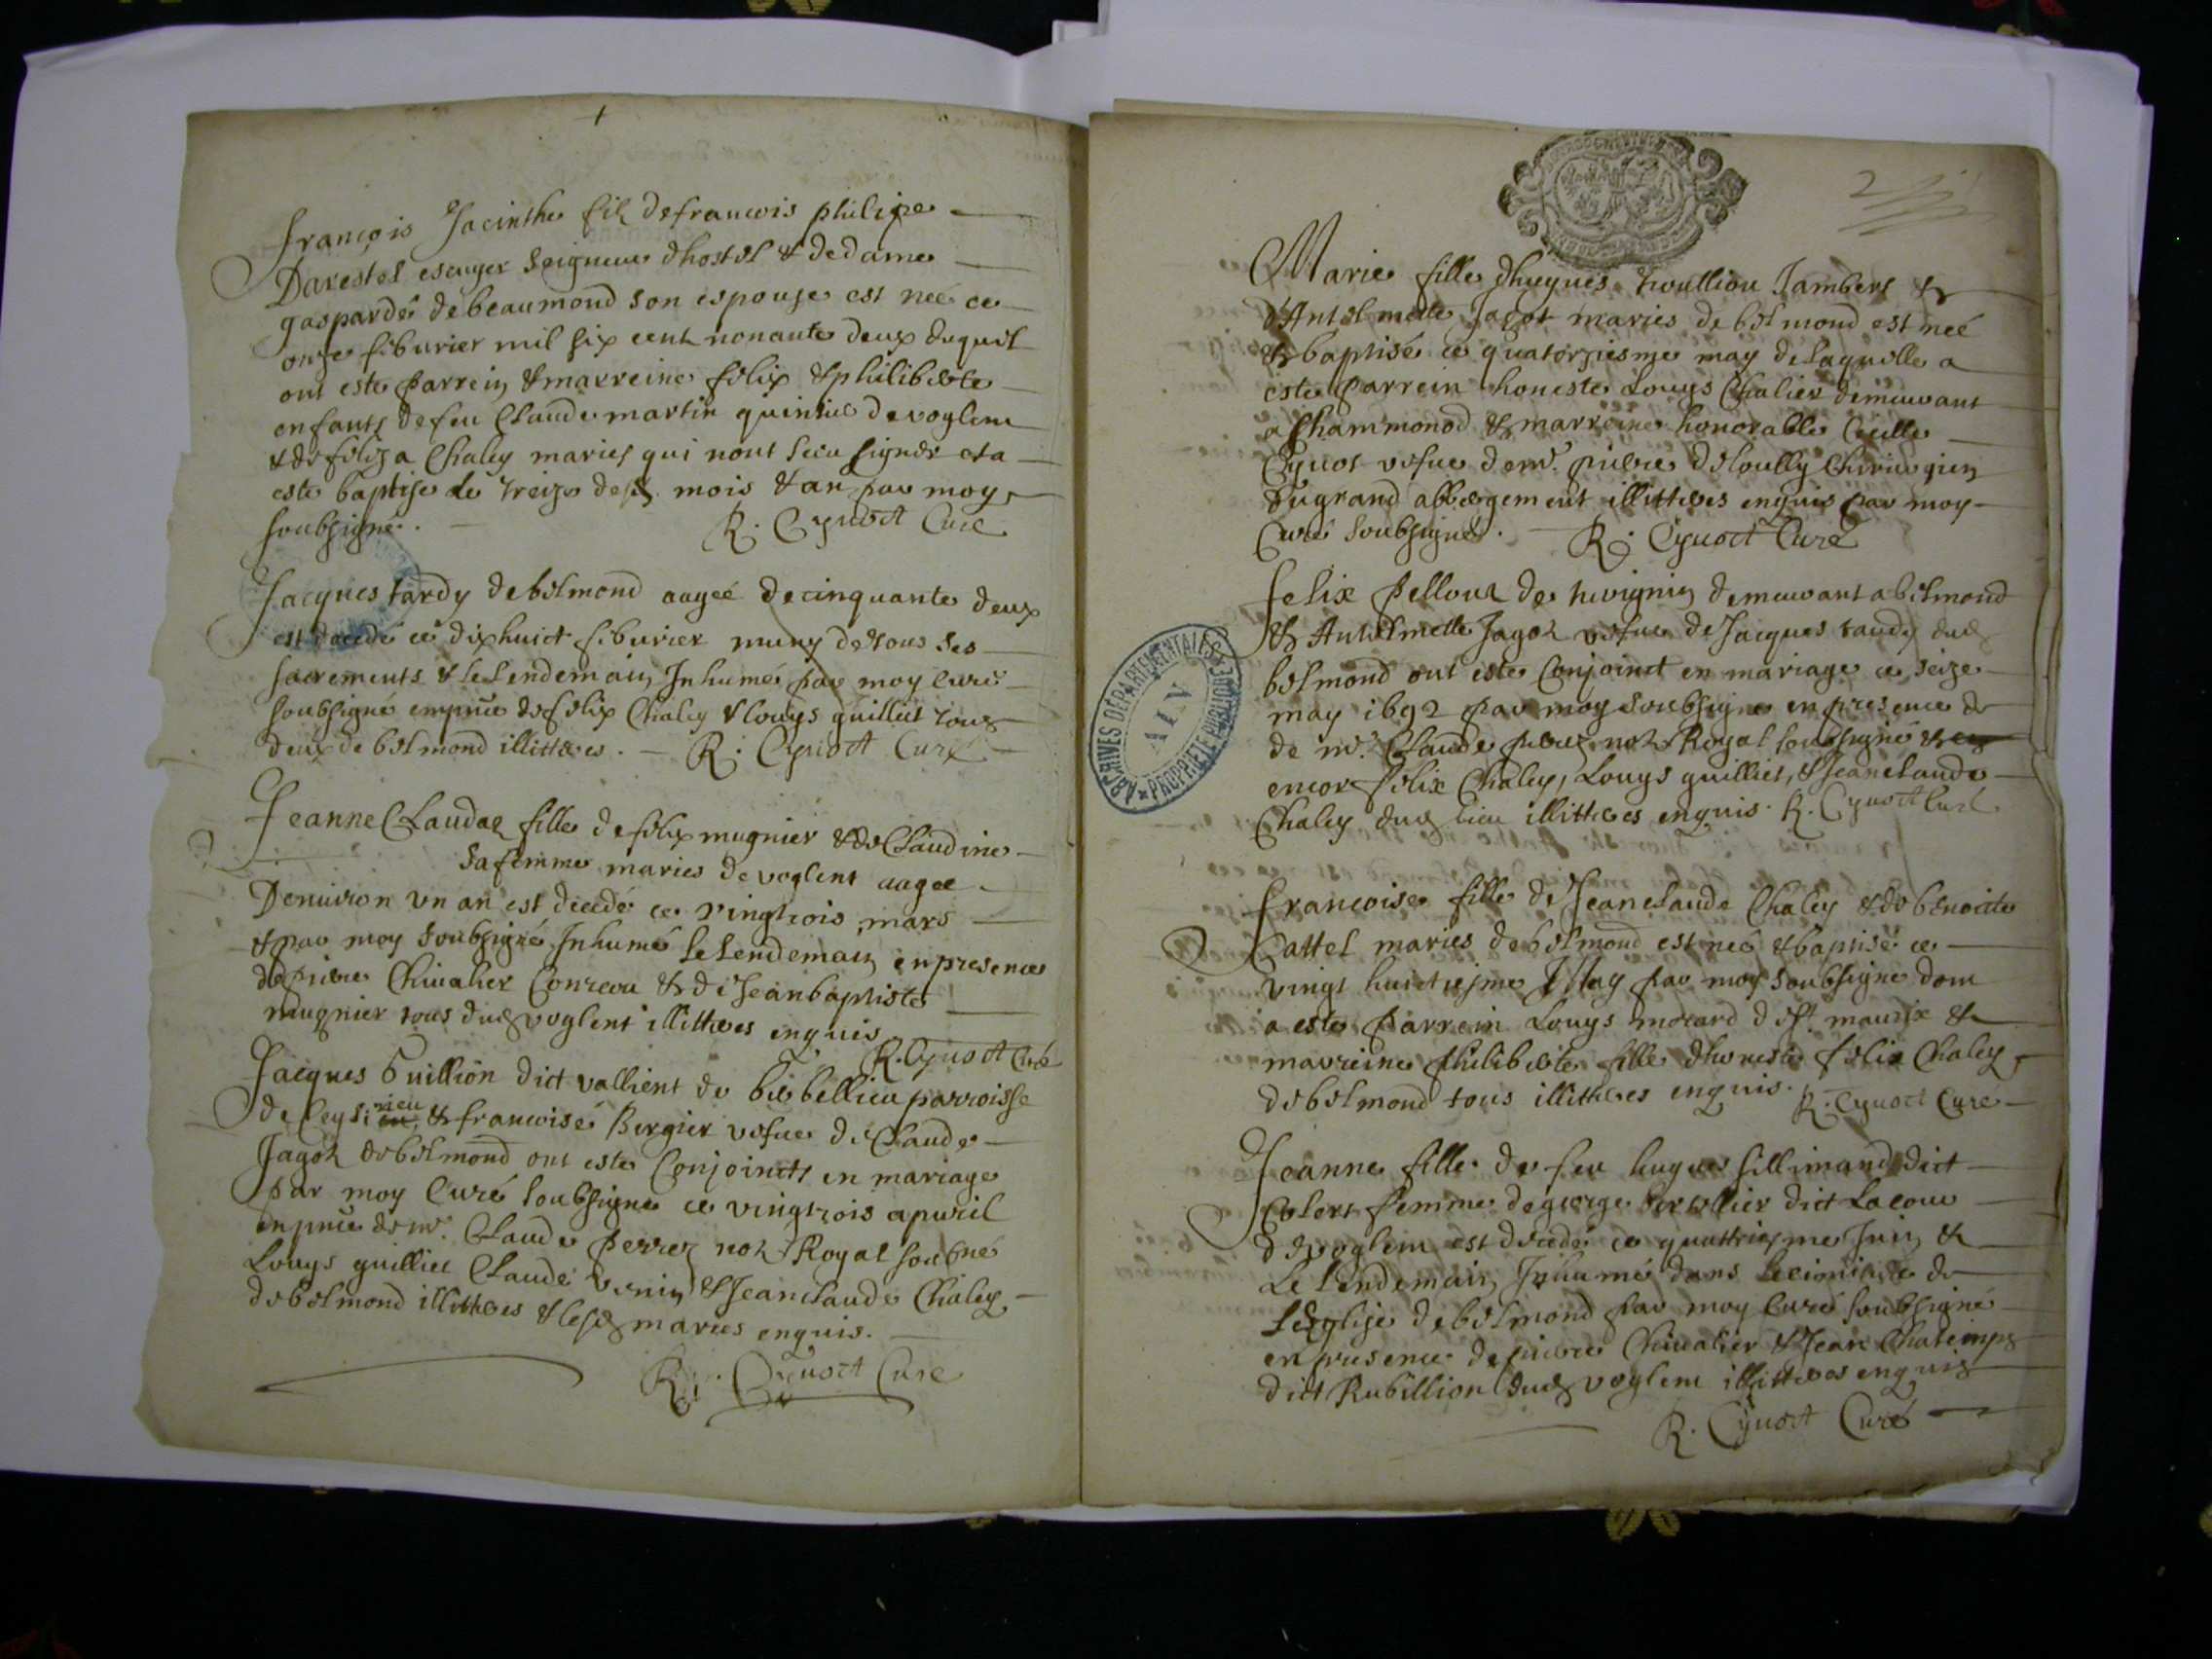 françois Jacinthe filz de francois philipe
Darestel escuyer Seigneur dhostel & de dame
gasparde de beaumond son espouse est neé ce
onze feburier mil six cent nonante deux duquel
ont este parrein & marreine felix & philiberte
enfants de feu Claude martin quintiul de voglent
& de feliza Chaley maries qui nont sceu signer et a
este baptise le treize desd mois & an par moy
soubsigné.
R. Cynoct Curé
Jacques tardy de belmond aageé de cinquante deux
est decedé ce dixhuict feburier muny de tous ses
sacrements & le lendemain Inhumé par moy curé
soubsigné en pnce de felix Chaley & louys guilliet tous
deux de belmond illitteres. R. Cynoct Curé
Jeanne Clauda fille de felix mugnier & de Claudine
sa femme maries de voglent aageé
Denuiron un an est decedé ce vingtrois mars
& par moy soubsigné Inhumé le lendemain en presence
de pierre Chiualier & de Jean baptiste
mugnier tous dud voglent illitteres enquis
R. Cynoct Curé
Jacques Guillion dict vallient de bibellieu parroisse
de Ceysirieu & francoise Bergier vefue de Claude
Jagot de belmond ont este Conjoincts en mariage
par moy Curé soubsigné ce vingtrois apuril
en pnce de mr. Claude perret not Royal soubné
Louys guilliet Claude & Jeanclaude Chaley
de belmond illitteres & lesd maries enquis.
R. Cynoct Curé
2
Marie fille dhugues Jambert &
dAntelmette Jagot maries de belmond est neé
& baptisé ce quatorziesme may de laquelle a
este parrein honeste Louys Chalier demeurant
a Chammonod & marreine honorable Cecille
Cynot vefue de mr. pierre Chirurgien
du grand abbergement illitteres enquis par moy
Curé soubsigné. R. Cynoct Curé
felix pelloux de demeurant a belmond
& Antelmette Jagot vefue de Jacques tardy dud
belmond ont este Conjoinct en mariage ce seize
may 1692 par moy soubsigné en presence de
de mr. Claude perret not Royal soubsigné &
encor felix Chaley, Louys guilliet, & Jeanclaude
Chaley dud lieu illitteres enquis. R. Cynoct Curé
ARCHIVES DÉPARTEMENTALES
AIN
PROPRIÉTÉ PUBLIQUE
francoise fille de Jeanclaude Chaley & de benoitte
Cattel maries de belmond est neé & baptisé ce
vingt huictiesme May par moy soubsigné dont
a este parrein Louys mocard de St. maurix &
marreine philiberte fille dhoneste felix Chaley
de belmond tous illitteres enquis. R. Cynoct Curé
Jeanne fille de feu hugues fillimand dict
Colert femme de george dict Lacour
de voglent est decedé ce quattriesme Juin &
Le lendemain Inhumé dans le cimitiere de
l'esglise de belmond par moy Curé soubsigné
en presence de pierre Chiualier & Jean Chatemps
dict Rubillion dud voglent illitteres enquis
R. Cynoct Curé